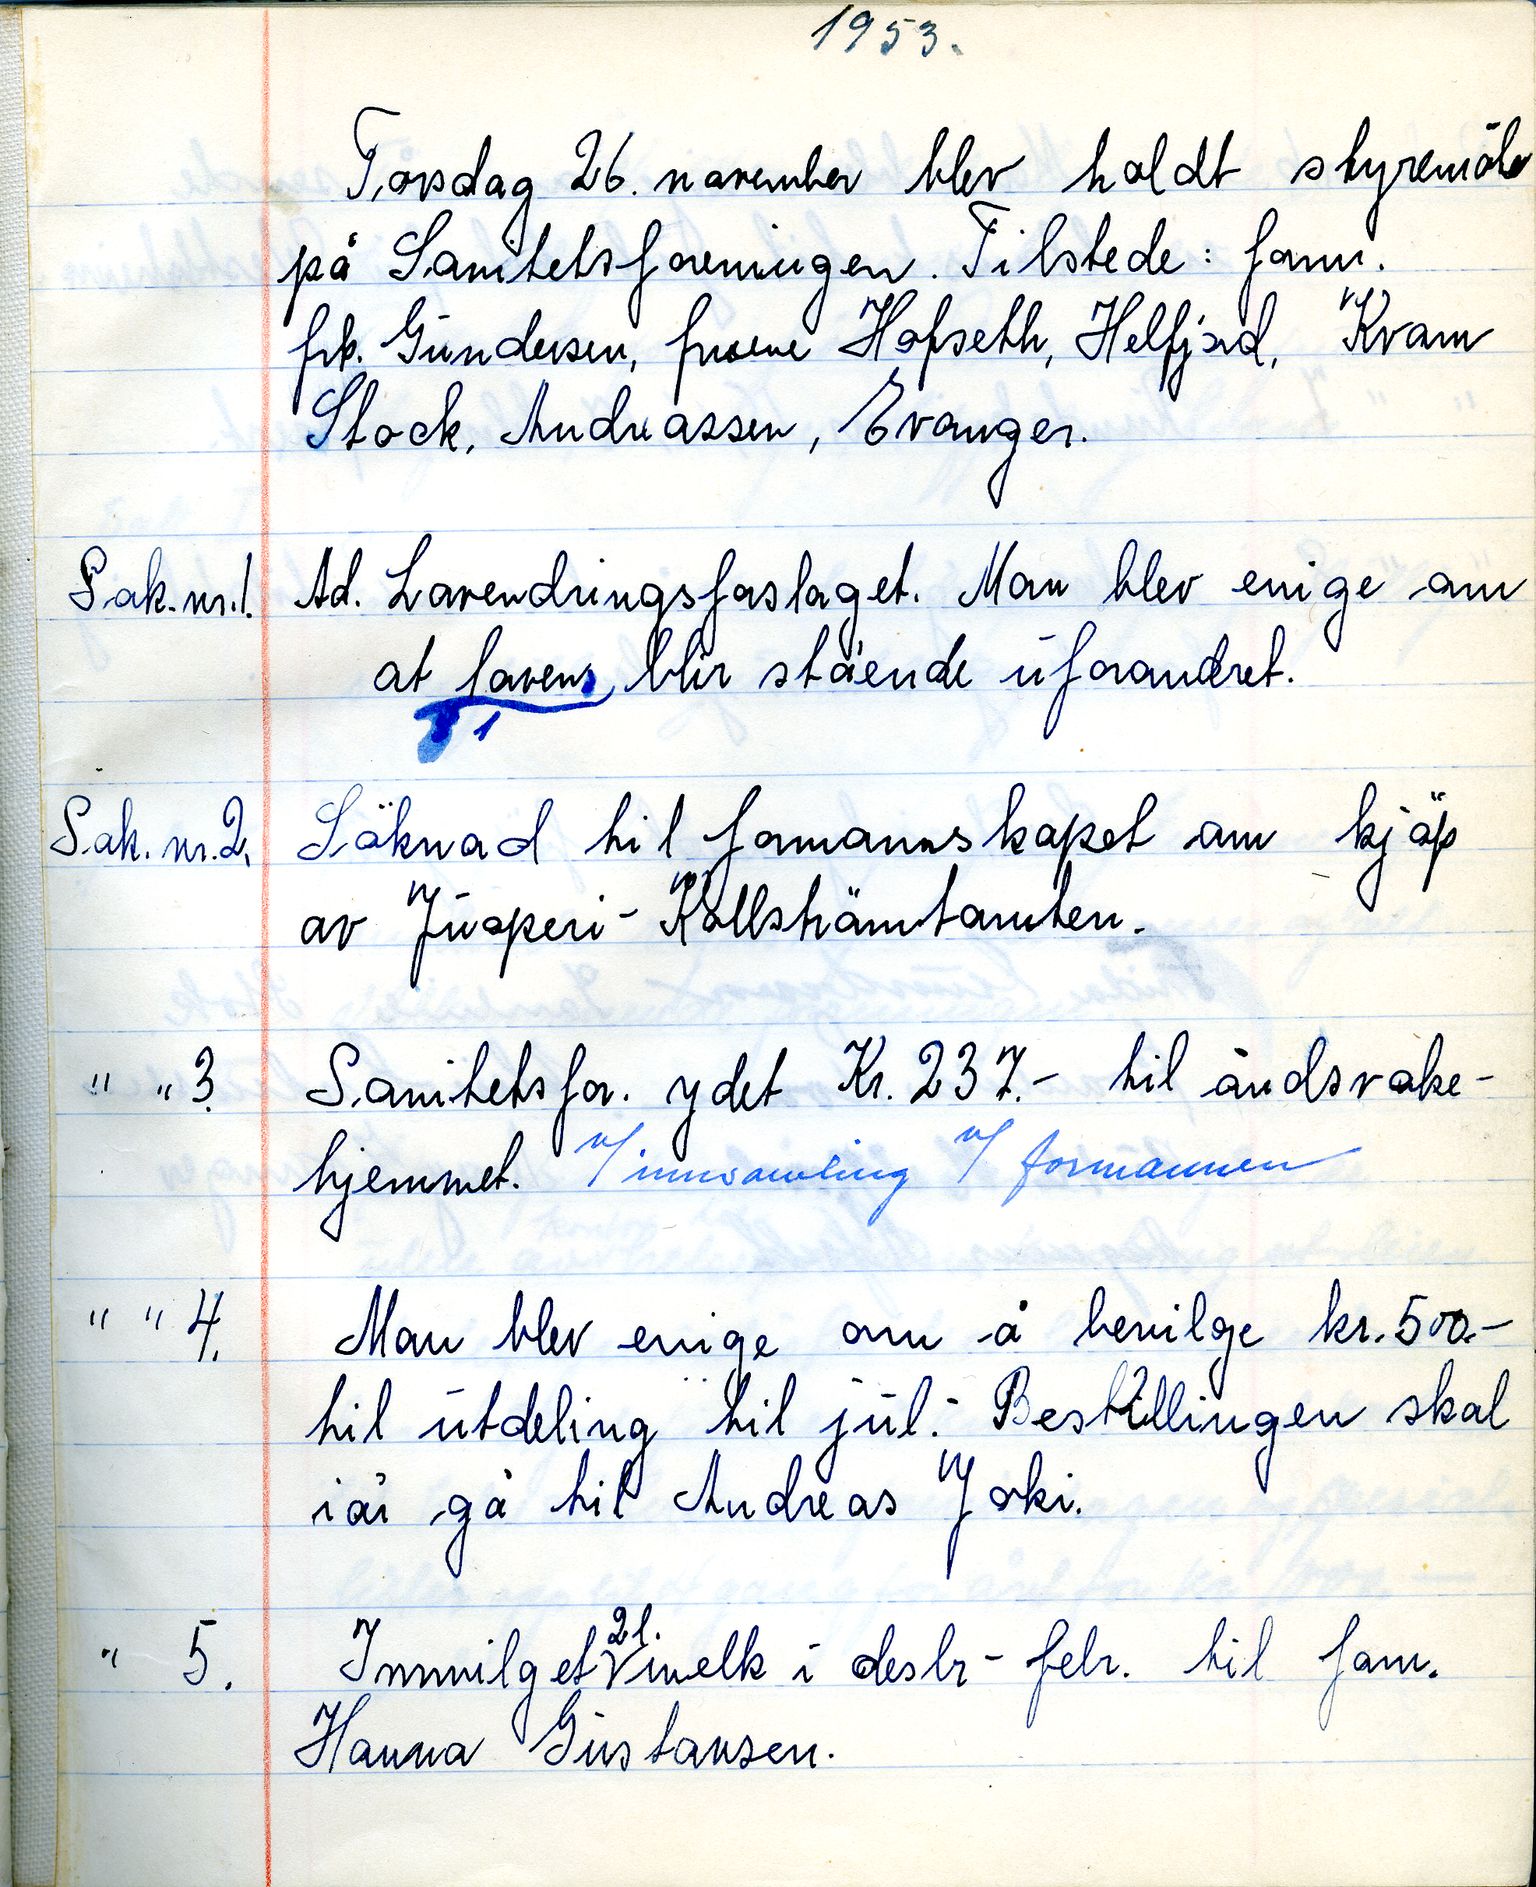 1953.
Torsdag 26. november blev holdt styremöte
på Sanitetsforeningen. Tilstede: form.
frk. Gundersen, fruene Hofseth, Helfjord, Kvam
Stock, Andreassen, Evanger.
Sak. nr. 1. Ad. Lovendringsforslaget. Man blev enige om
at lovens § 1 blir stående uforandret.
Sak. nr. 2. Söknad til formannskapet om kjöp
av Jusperi-Kollströmtomten.
" " 3. Sanitetsfor. ydet Kr. 237.- til åndsvake-
hjemmet. v/innsamling v/ formannen
" " 4. Man blev enige om å bevilge kr. 500.-
til utdeling til jul.- Bestillingen skal
iår gå til Andreas Joki.
" 5. Innvilget 2 l. melk i desbr - febr. til fam.
Hanna Gustavsen.